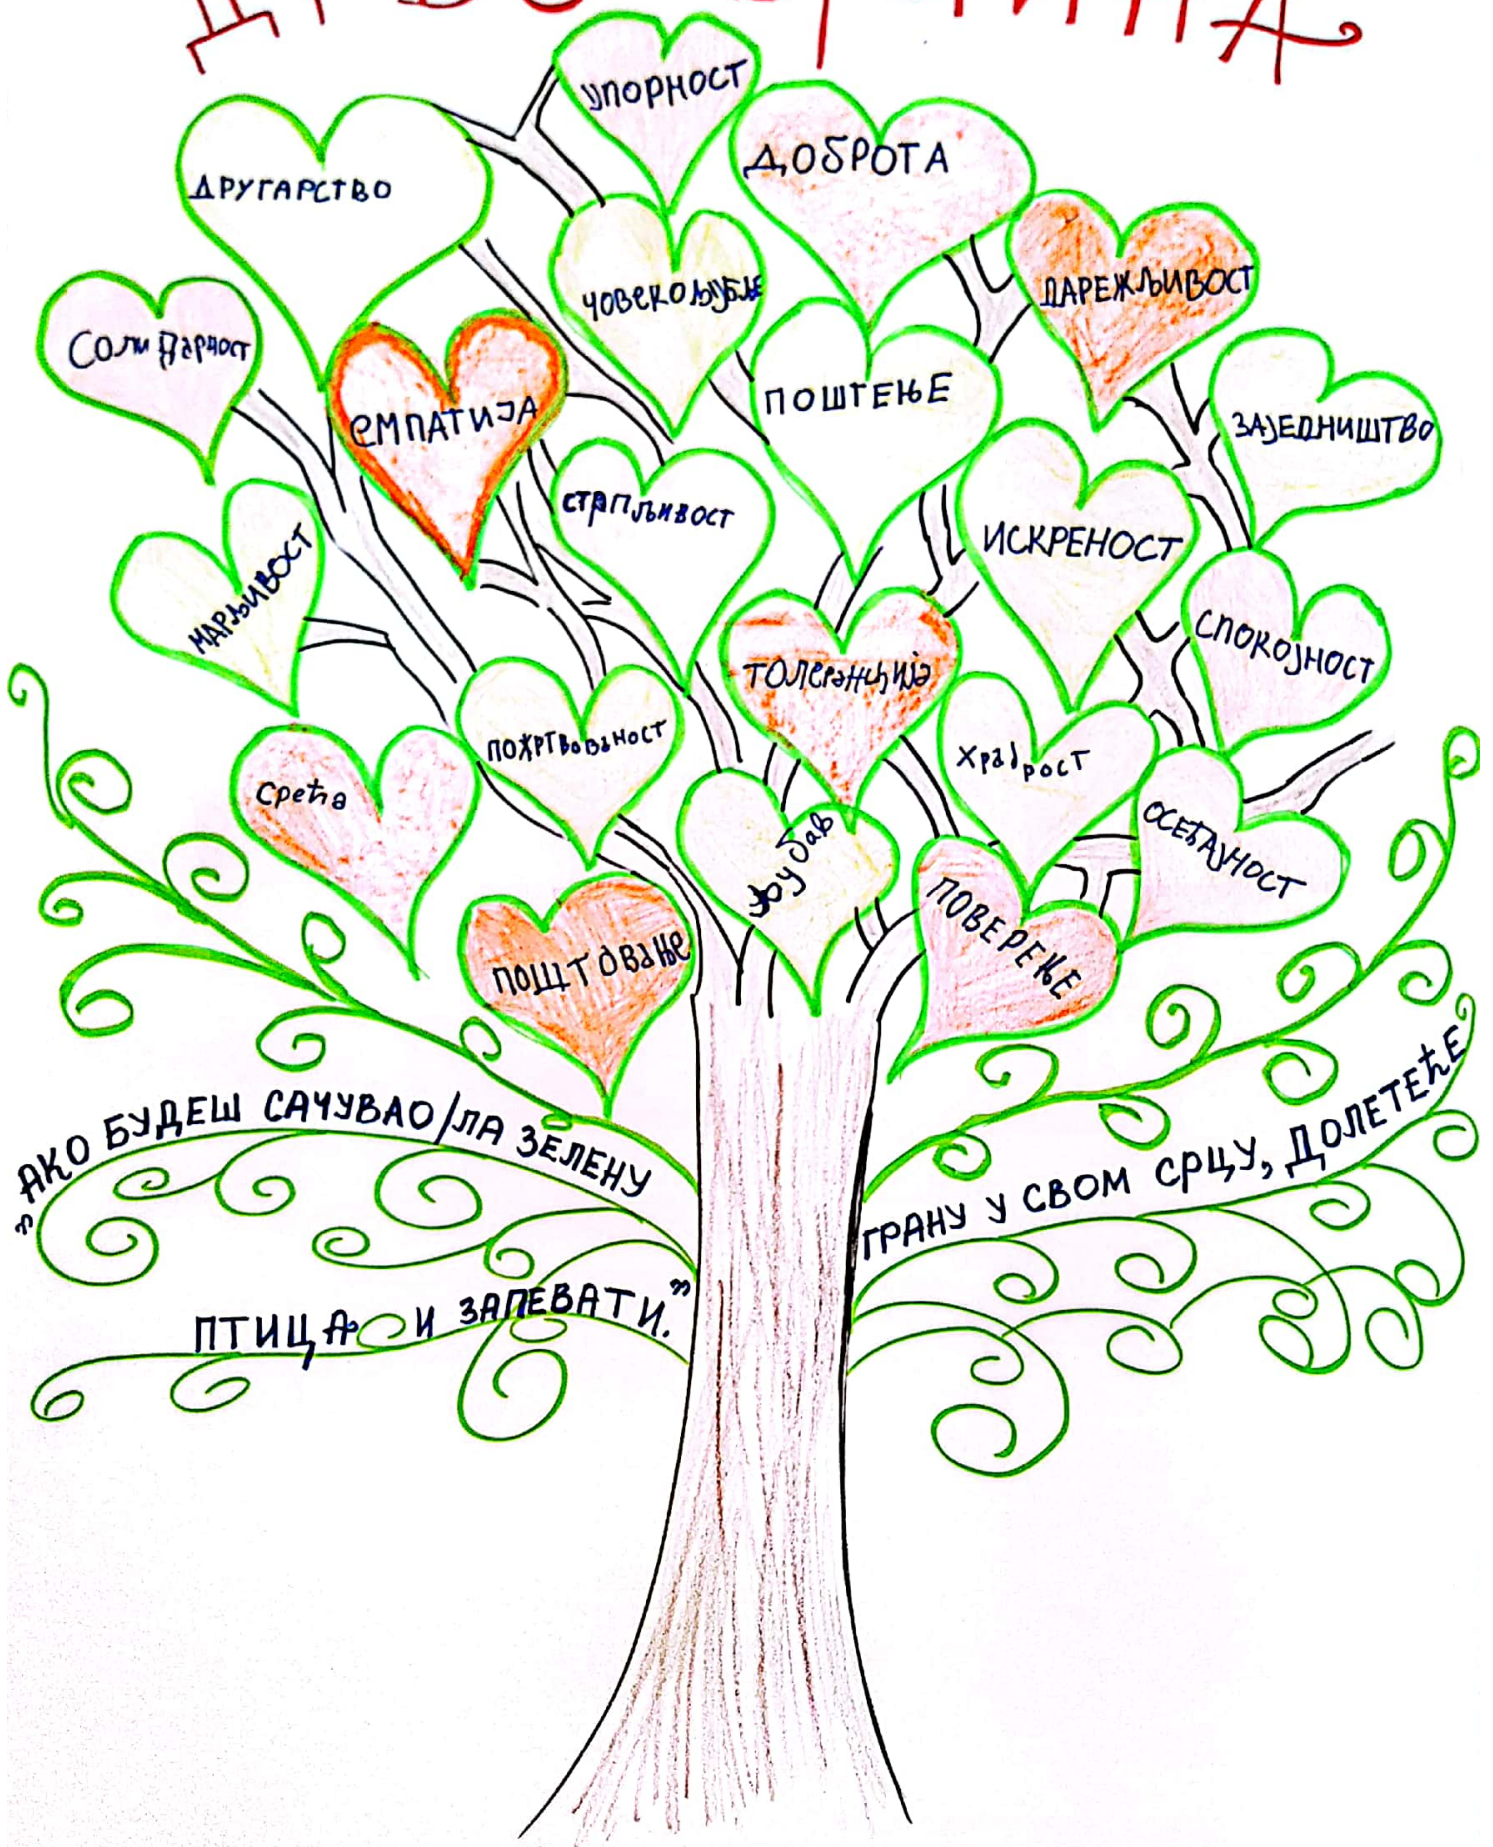 УПОРНОСТ
ДОБРОТА
ДРУГАРСТВО
ЧОВЕКОЉУБЉЕ
ДАРЕЖЉИВОСТ
СОЛИДАРНОСТ
ЕМПАТИЈА
ПОШТЕЊЕ
ЗАЈЕДНИШТВО
СТРПЉИВОСТ
ИСКРЕНОСТ
МАРЉИВОСТ
СПОКОЈНОСТ
ТОЛЕРАНЦИЈА
ПОЖРТВОВАНОСТ
ХРАБРОСТ
Срећа
Љубав
ОСЕЋАЈНОСТ
ПОВЕРЕЊЕ
ПОШТОВАЊЕ
„АКО БУДЕШ САЧУВАО/ЛА ЗЕЛЕНУ
ГРАНУ У СВОМ СРЦУ, ДОЛЕТЕЋЕ
ПТИЦА И ЗАПЕВАТИ.”